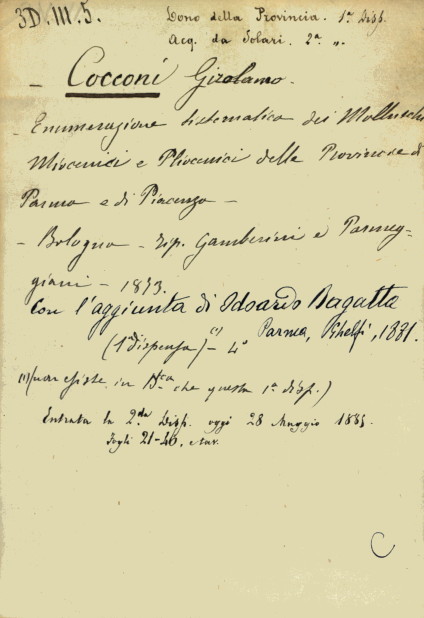 3D.III.5.
Dono della Provincia. 1ª Disp.
Acq. da Solari. 2ª "
- Cocconi Girolamo.
- Enumerazione sistematica dei Molluschi
Miocenici e Pliocenici delle Provincie di
Parma e di Piacenza -
- Bologna - tip. Gamberini e Parmeg-
giani - 1873.
Con l'aggiunta di Edoardo Bagatta
Parma, 1881.
(1ª dispensa) (1) - 4°
(1) (non esiste in Btca che questa 1ª disp.)
Entrata la 2da Disp. oggi 28 Maggio 1885.
fogli 21-46,
C